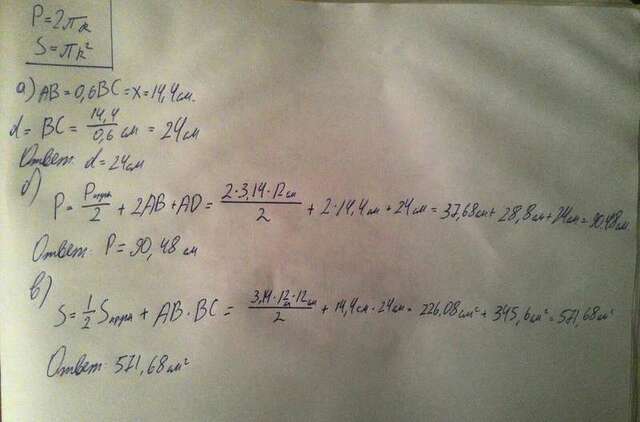 P=2πR
S=πR²
а) AB=0,6BC=x=14,4см.
d= BC= 14,4/0,6 см = 24см
Ответ: d=24см
б)
P= Pокружн/2 + 2AB+AD= 2·3,14·12см/2 + 2·14,4см + 24см = 37,68см + 28,8см + 24см = 90,48см.
Ответ: P=90,48 см
в)
S= 1/2 Sкруга + AB·BC = 3,14·12см·12см/2 + 14,4см·24см = 226,08см² + 345,6см² = 571,68см²
Ответ: 571,68см²